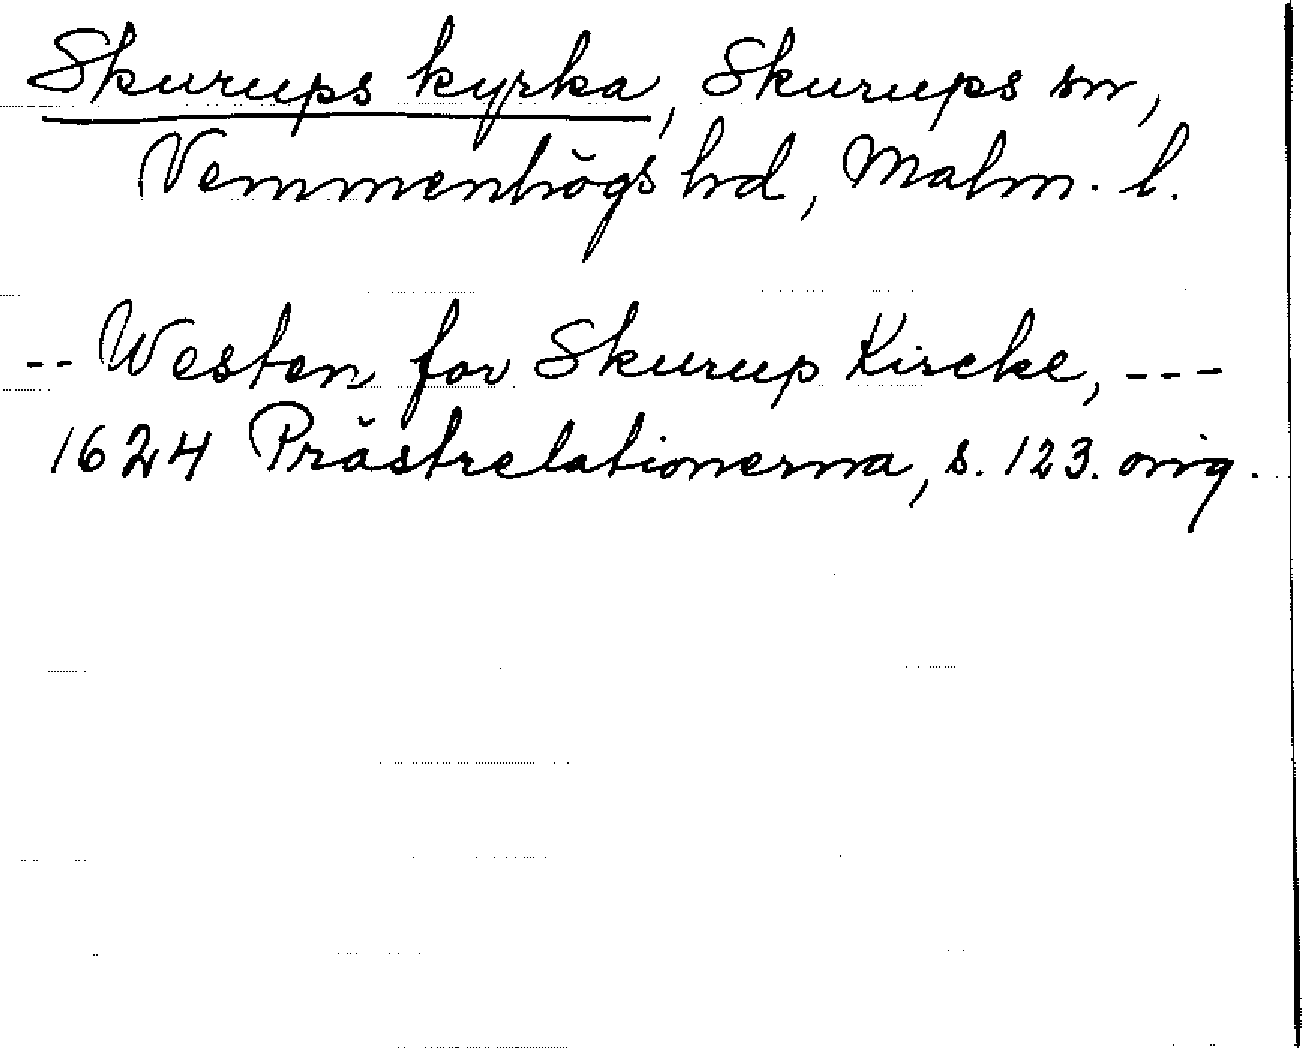 Skurups kyrka, Skurups sn,
Vemmenhögs hd, Malm. l.
-- Westen for Skurup Kircke, ---
1624 Prästrelationerna, s. 123. orig.